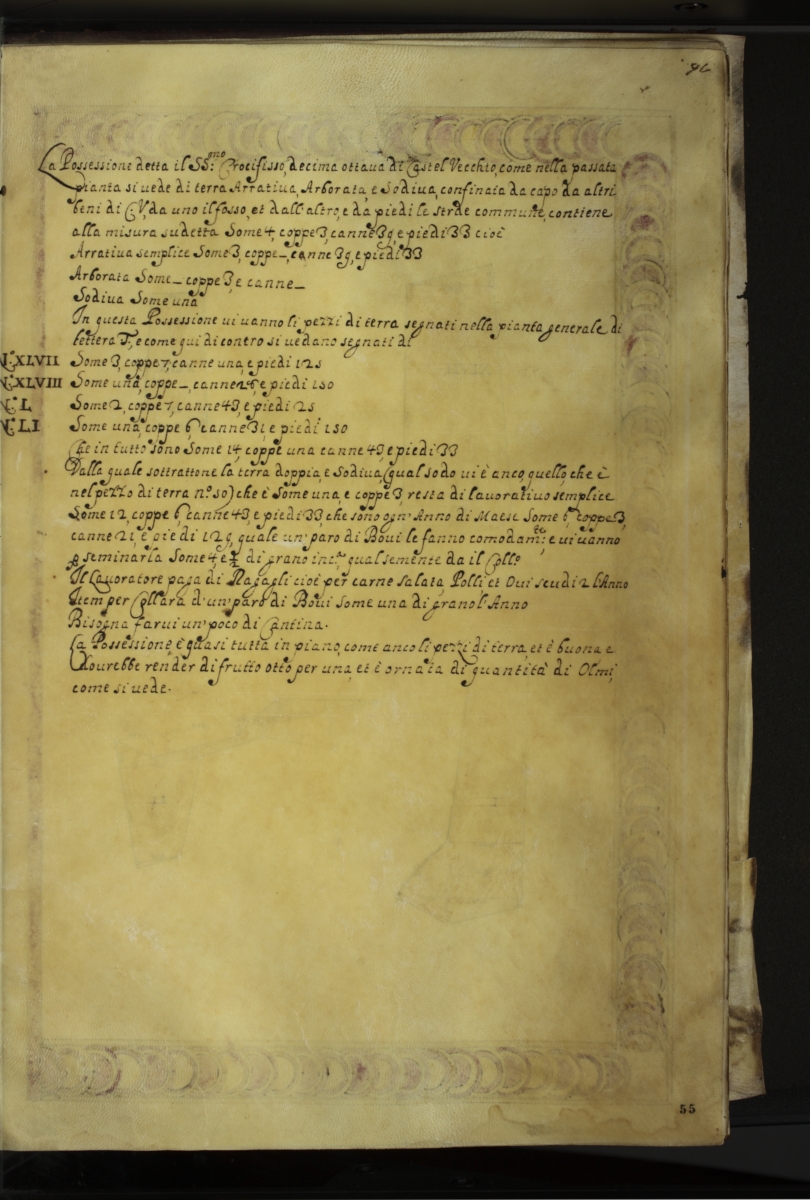 96
La Possessione detta il SS.mo Crocifisso, decima ottaua di Castel Vecchio, come nella passata
pianta si uede di terra Arratiua, Arborata, e Sodiua, confinata da capo da altri
beni di CV. da uno il fosso, et dall'altro, e da piedi le strde commune, contiene
alla misura sudetta Some 4, coppe 3, canne 39, e piedi 33 cioè
Arratiua semplice Some 3, coppe _, canne 39, e piedi 33
Arborata Some _ coppe 3, e canne _
Sodiua Some una
In questa Possessione ui uanno li pezzi di terra segnati nella pianta generale di
lettera T, e come qui di contro si uedano segnati di
XLVII Some 3, coppe 7, canne una, e piedi 125
XLVIII Some una, coppe _, canne 25, e piedi 150
L Some 2, coppe 7, canne 43, e piedi 25
LI Some una, coppe 6, canne 31, e piedi 150
Che in tutto sono Some 14, coppe una canne 43, e piedi 33
Dalla quale sottrattone la terra doppia, e Sodiua, (qual sodo ui è anco, quello, che è
nel pezzo di terra n.o 50) che è Some una, e coppe 3 resta di lauoratiuo semplice
Some 12, coppe 6, canne 43, e piedi 33, che sono ogn' Anno di Maese Some 6, coppe 3,
canne 21, e piedi 129, quale un' paro di Boui le fanno comodam.te e ui uanno
p seminarla Some 4 e ½ di grano inc.a qual semente da il Coll.o
Il Lauoratore paga di Regagli cioè per carne salata, Polli et Oui scudi 2 l'Anno
Item per Collara d'un' paro di Boui Some una di grano l'Anno
Bisogna farui un' poco di Cantina.
La Possessione è quasi tutta in piano, come anco li pezzi di terra, et è buona e
Dourebbe render di frutto otto per una, et è ornata di quantità di Olmi,
come si uede.
55